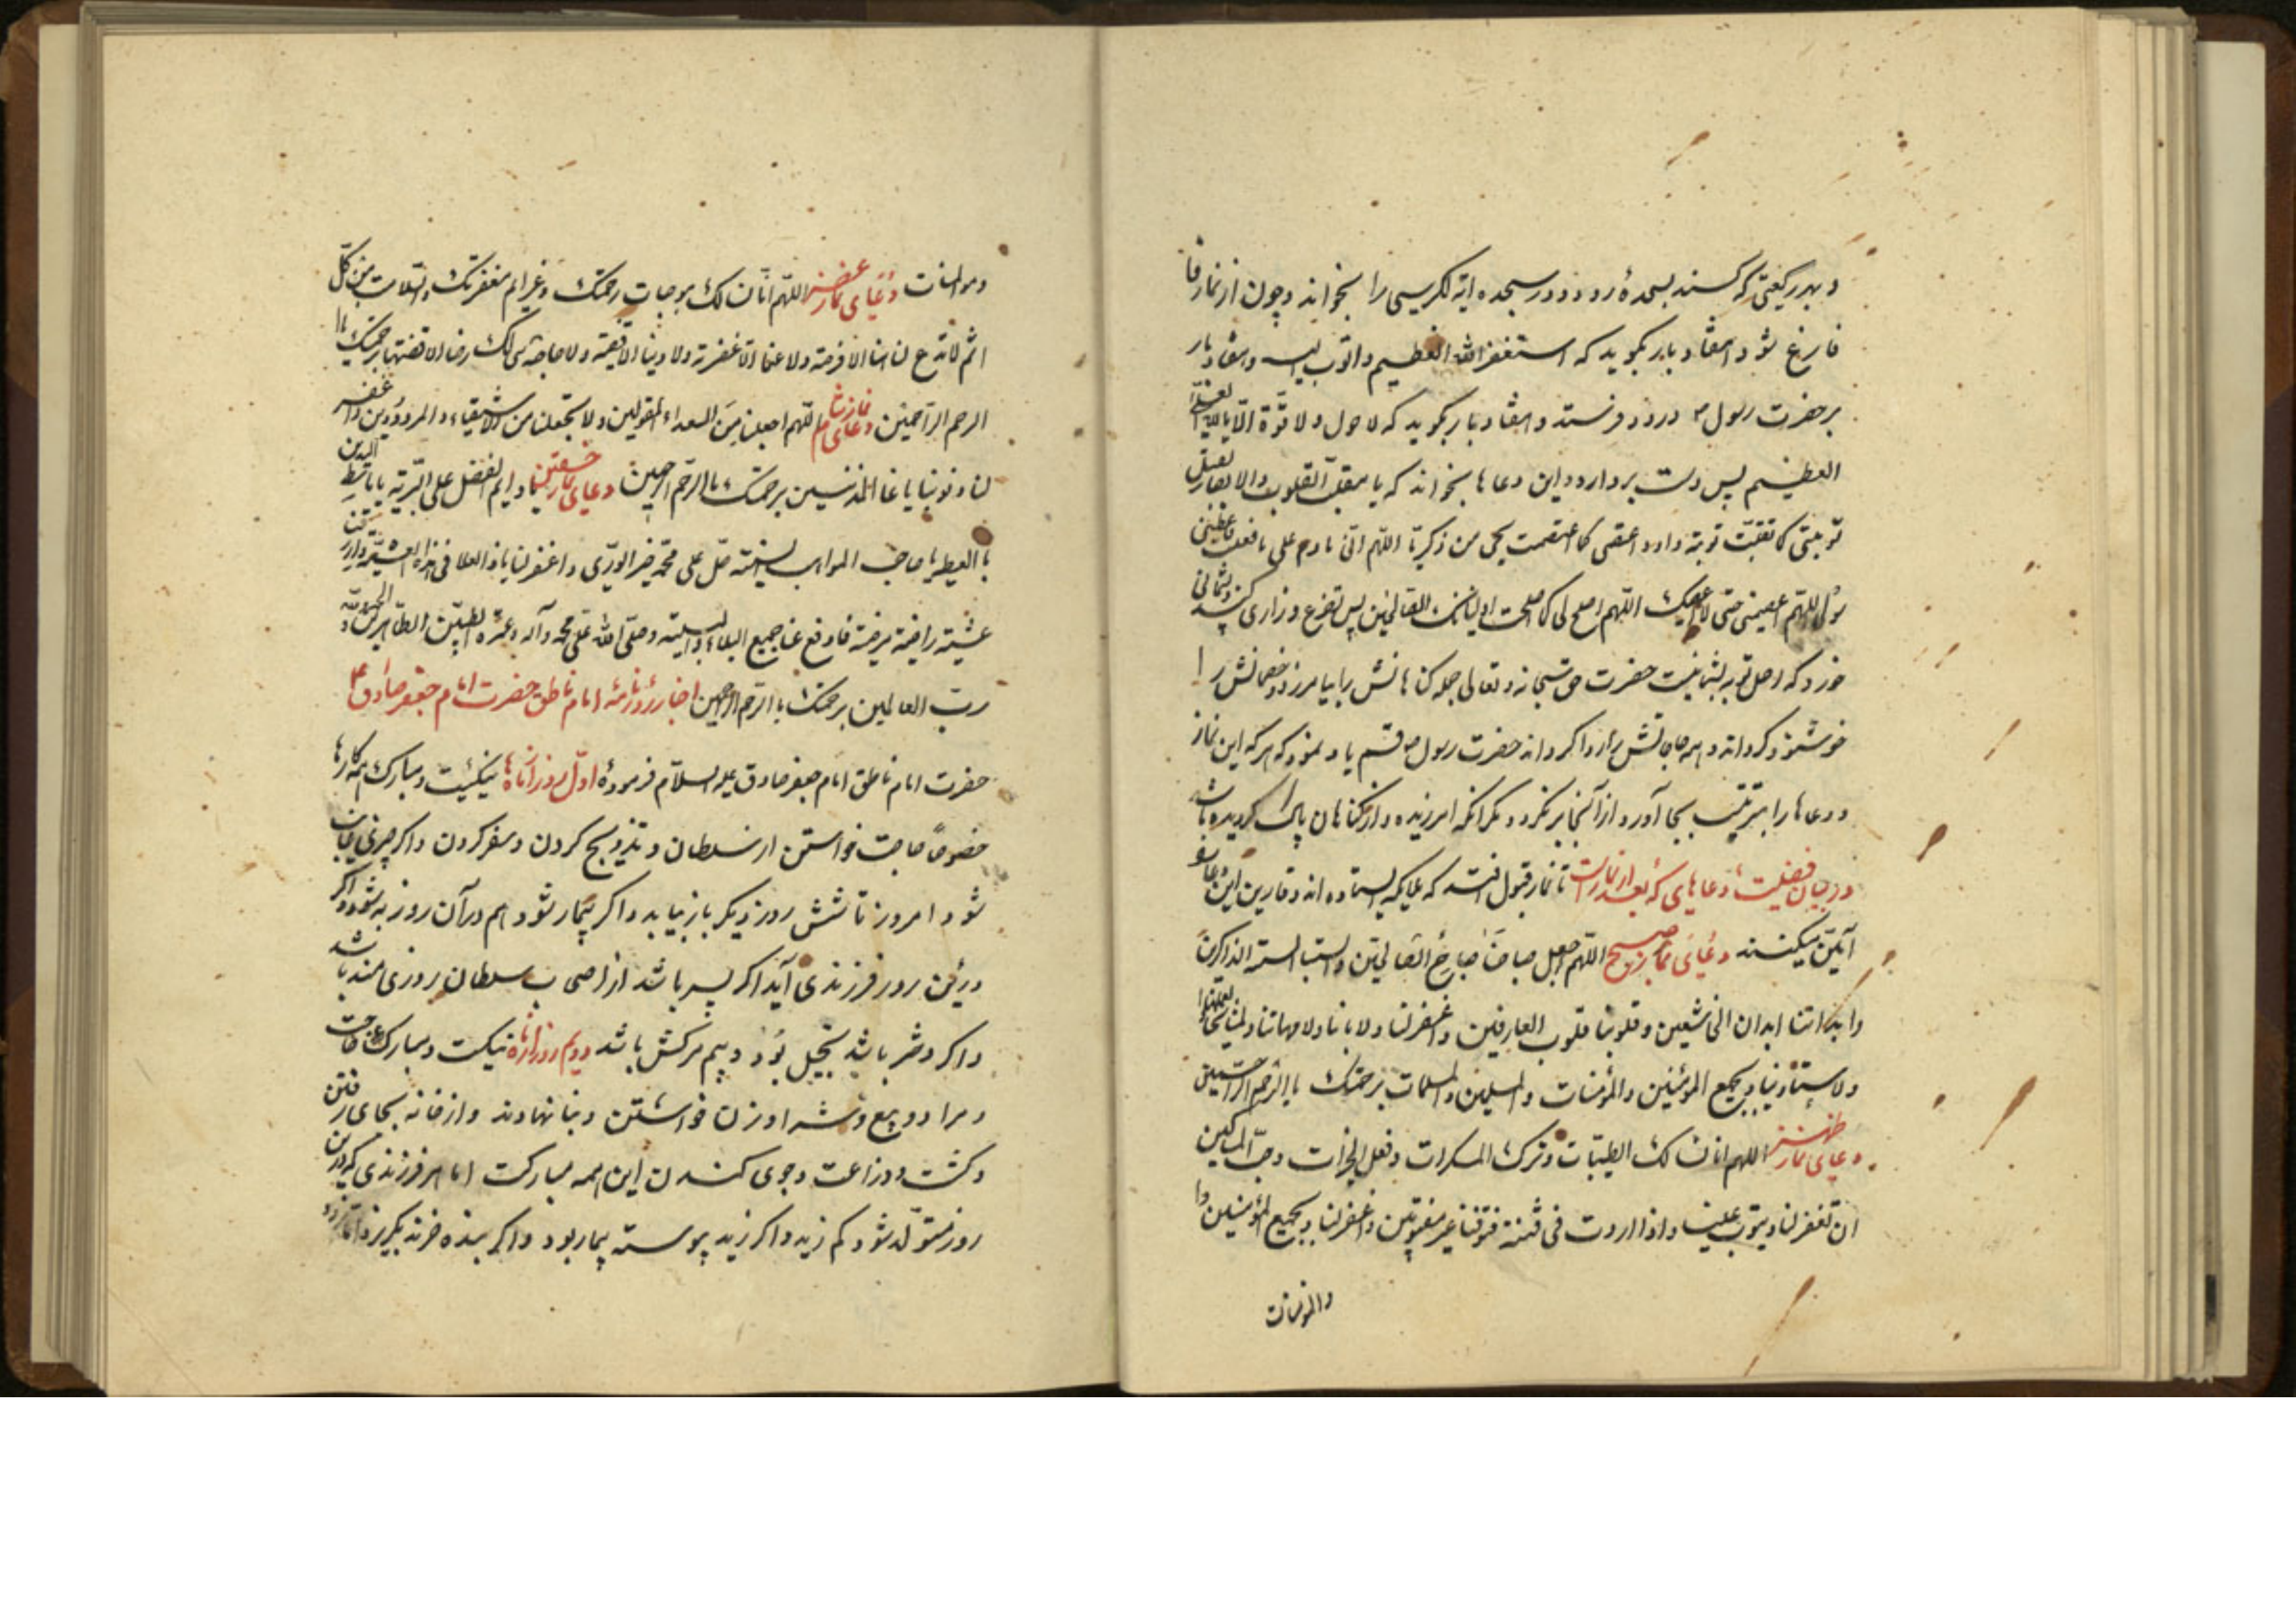 و بهر رکعتی که کنند بسجده رود و در سجده آیة الکرسی را بخواند و چون از نماز
فارغ شود هفتاد بار بگوید که استغفر الله العظیم و اتوب الیه و هفتاد بار
بر حضرت رسول درود فرستد و هفتاد بار بگوید که لا حول و لا قوّة الّا بالله العلی
العظیم پس دست بردارد و این دعاها بخواند که یا مقلب القلوب والابصار
توبتی کما تقبّلت توبة داود اعصمنی کما عصمت یحیی من زکریّا اللّهم انّی نادم علی ما فعلت
اللّهم اعصمنی حتی لا اعصیک اللّهم اصلح لی کما اصلحت اولیائک الصالحین پس تضرع و زاری کند
خورد که اصل توبه پشیمانیست حضرت حق سبحانه و تعالی جمله کناهانش را بیامرزد و خصمانش را
خوشنود کرداند و همه حاجاتش را روا کرداند حضرت رسول قسم یاد نمود که هر که این نماز
و دعاها را بترتیب بجا آورد از آنجا بر نگردد مگر آنکه امرزیده و از کناهان پاک کردیده باشد
در بیان فضیلت دعاهای که بعد از نماز است تا نماز قبول افتد که ملایکه ایستاده اند و قارین این دعا
آمین میکنند دعای نماز صبح اللّهم اجعل صباحنا صباح الصالحین و السنتنا السنة الذاکرین
وابداننا ابدان الخاشعین و قلوبنا قلوب العارفین و اغفر لنا ولابائنا ولامهاتنا ولمشایخنا
ولاستادینا و بجمیع المؤمنین والمؤمنات والمسلمین والمسلمات برحمتک یا ارحم الراحمین
دعای نماز ظهر اللهم انا نسالک الطیبات و ترک المنکرات و فعل الخیرات و حب المساکین
ان تغفر لنا و یتوب علینا و اذا اردت فی فتنة فتوفنا غیر مفتونین و اغفر لنا و بجمیع المؤمنین
والمؤمنات
ومؤمنات دعای نماز عصر اللّهم انّا نسالک موجبات رحمتک و عزایم مغفرتک والسّلامة من کلّ
اثم لا تدع لنا ذنبا الا غفرته ولا دینا الا قضیته ولا حاجة هی لک رضا الا قضیتها برحمتک یا
ارحم الرّاحمین دعای نماز شام اللّهم اجعلنا من السعداء المقبولین ولا تجعلنا من الاشقیاء والمردودین و اغفر
لنا ذنوبنا یا غافر المذنبین برحمتک یا ارحم الراحمین دعای نماز خفتن یا دایم الفضل علی البریّة یا باسط الیدین
بالعطیة یا صاحب المواهب السنیّة صلّ علی محمّد خیر الوری واغفر لنا یا ذا العلا فی هذه العشیّة
عشیة راضیة مرضیة فادفع عنا جمیع البلاء والبلیّة و صلّی الله علی محمّد و آله و عترته الطیبین الطاهرین و الحمد لله
ربّ العالمین برحمتک یا ارحم الراحمین اخبار روزنامهٔ امام ناطق حضرت امام جعفر صادق
حضرت امام ناطق امام جعفر صادق علیه السلام فرموده اوّل روز از ماهها نیکست و مبارک همه کارها
خصوصًا حاجت خواستن از سلطان و تزویج کردن و سفر کردن و اکر چیزی غایب
شود امروز تا شش روز دیکر باز بیابد و اکر بیمار شود هم در آن روز به شود و اکر
درین روز فرزندی آید اکر پسر باشد از اصحاب سلطان روزی مند باشد
و اکر دختر باشد بخیل بود دویم روز از ماه نیکست و مبارک
و مراد و بیع و شرا و زن خواستن و بنا نهادن و از خانه بجای رفتن
و کشت و زراعت و جوی کندن این همه مبارکست اما هر فرزندی که درین
روز متولّد شود کم زید و اکر زید پیوسته بیمار بود و اکر بنده خرند بگریزد